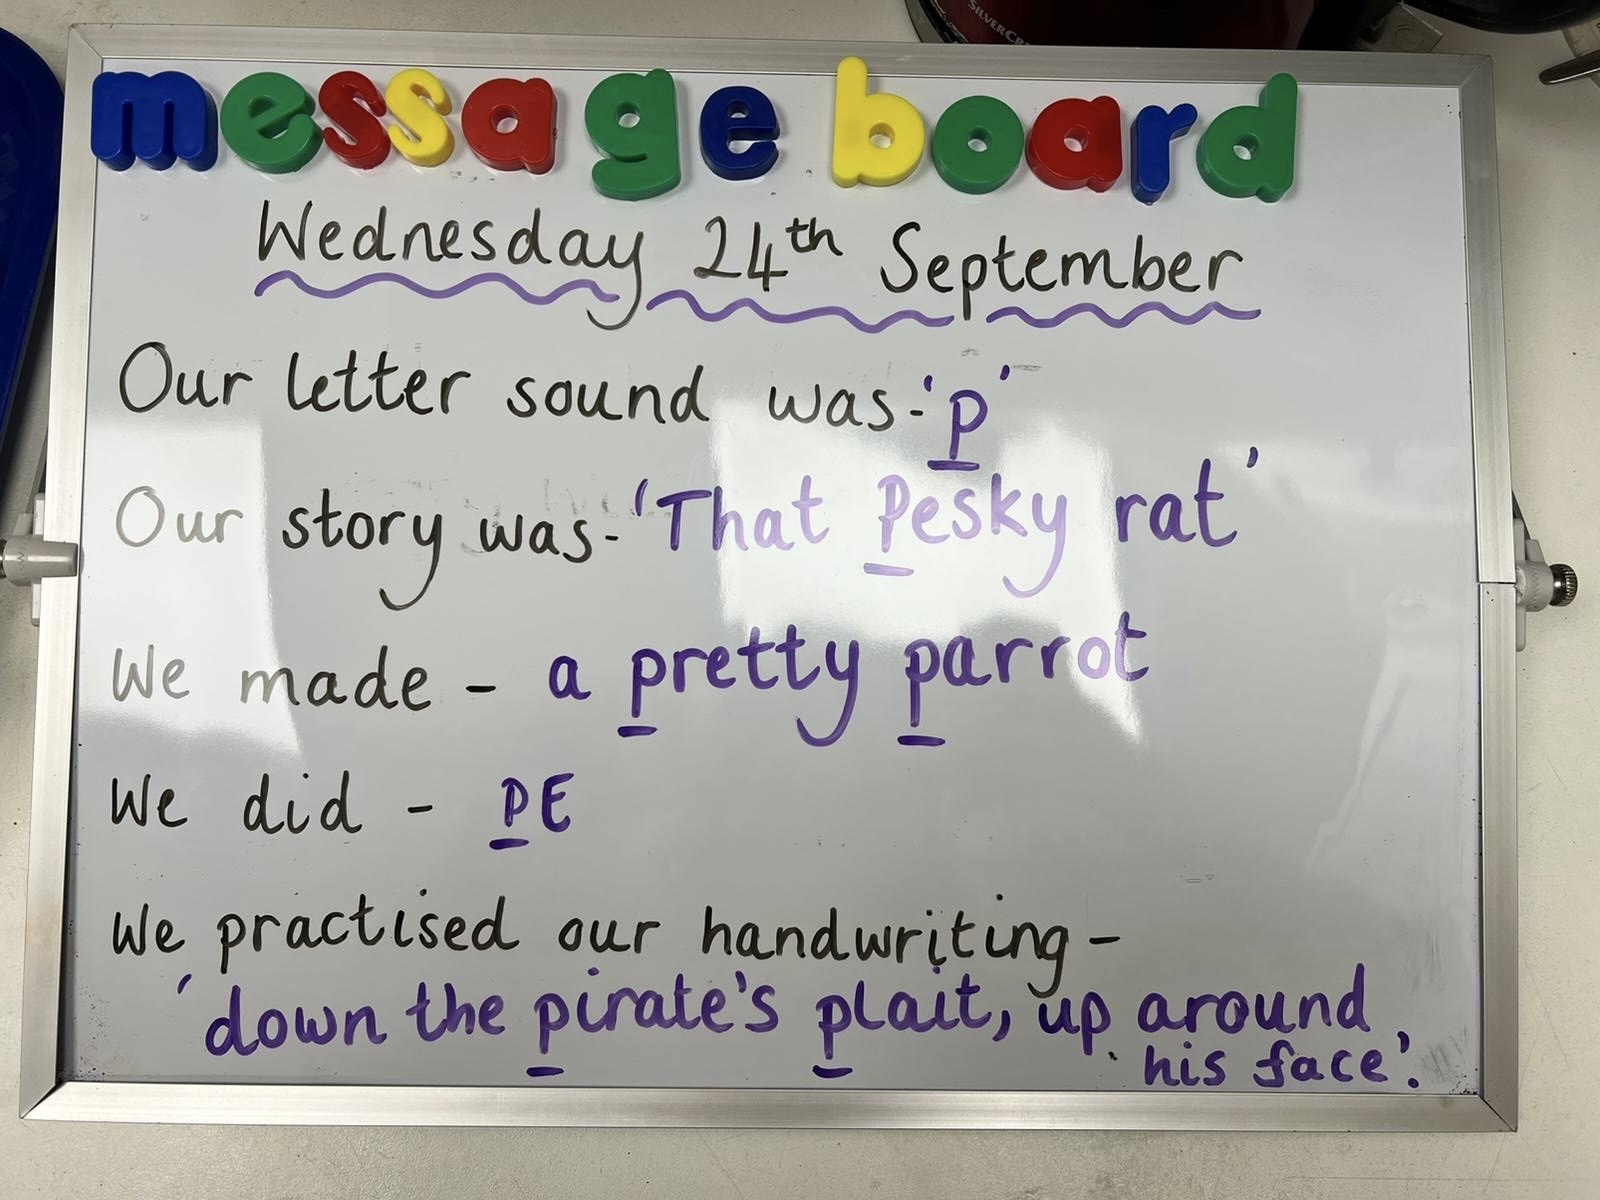 SILVERCR
message board
Wednesday 24th September
Our letter sound was - 'p'
Our story was - 'That Pesky rat'
We made - a pretty parrot
We did - PE
We practised our handwriting -
'down the pirate's plait, up around
his face'.